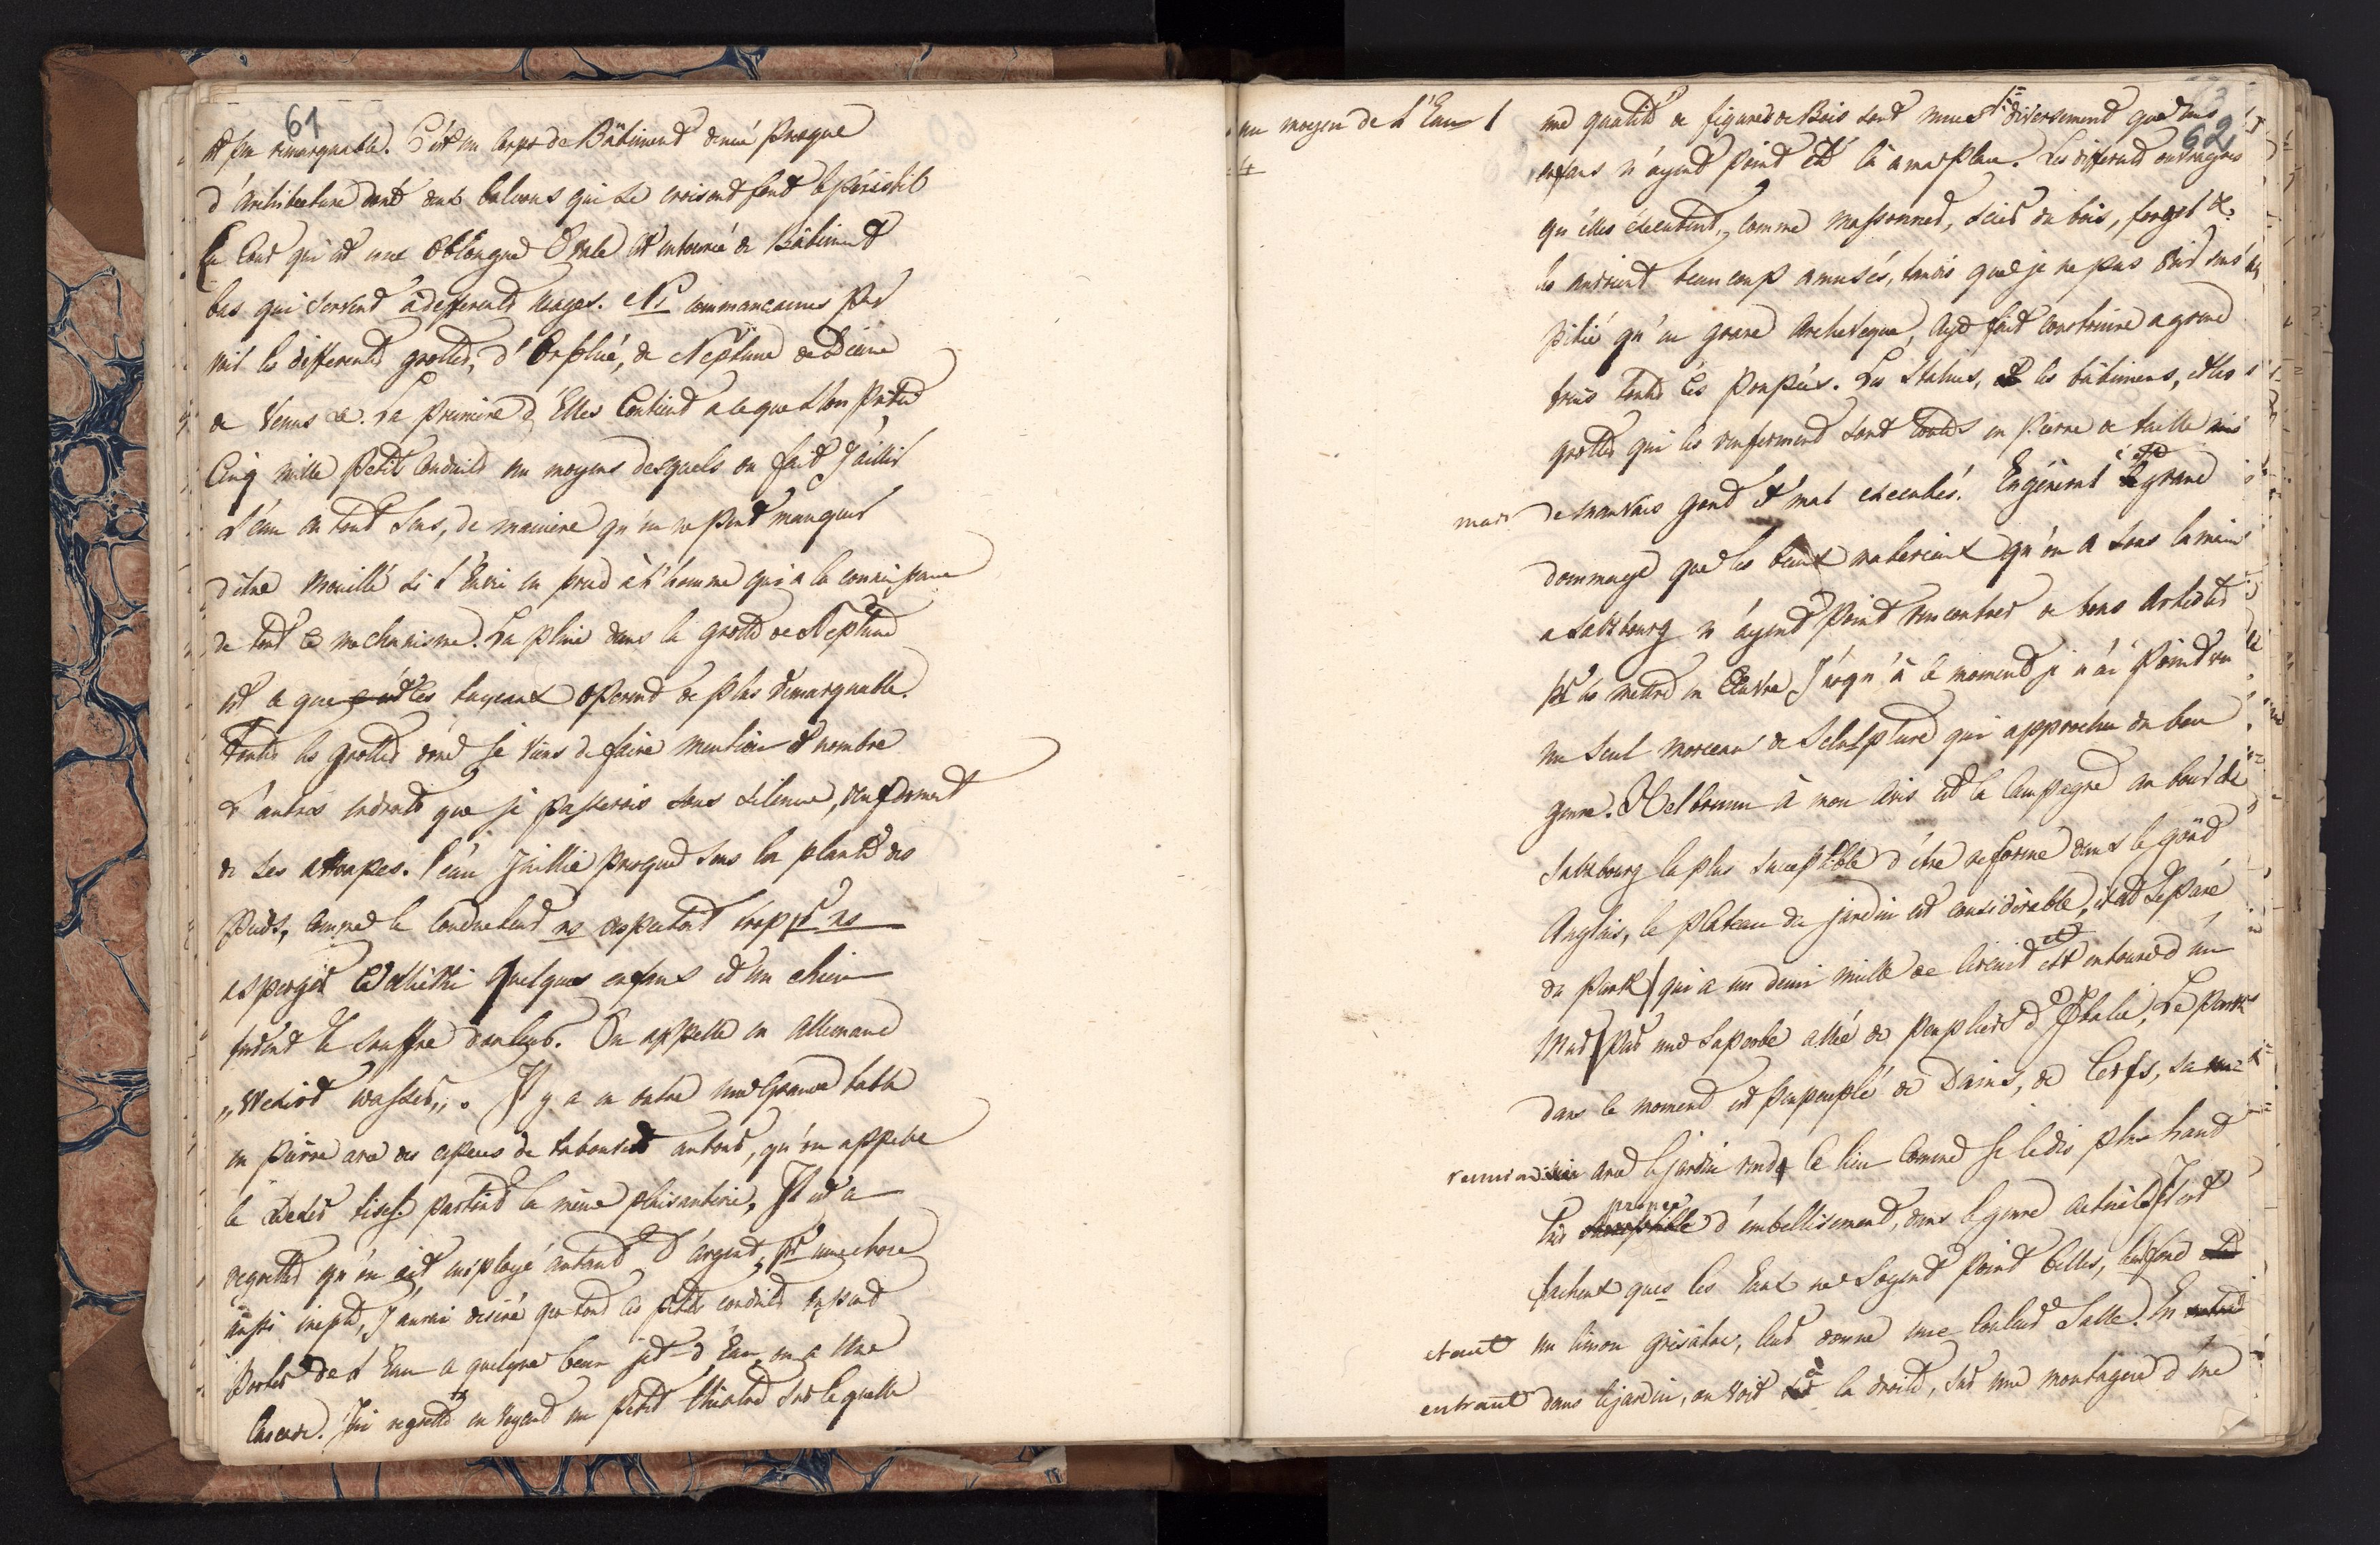 61
est peu remarquable. C'est un Corps de Bâtiment denué presque
d'Architecture dont deux balcons qui se croisent font le péristil
La Cour qui est une Oblongue Ovale est entourée de Bâtiments
bas qui servent à differents usages. Ns commancames par
voir les differents grottes, d'Orphée, de Neptune de Diane
de Venus &. La premiere d'Elles Contient a ce que l'on prétend
Cinq mille petits Conduits au moyens desquels on fait J'aillir
L'eau en tout sens, de maniere qu'on ne peut manquer
d'être mouillé si l'Envie en prend à l'homme qui a la connaissance
de tout ce mechanisme. La pluie dans la grotte de Neptune
est ce que les tuyeaux operent de plus remarquable.
Toutes les grottes dont je viens de faire mention et nombre
d'autres endroits que je passerois sous silence, renferment
de ses attrapes. l'eau Jaillie presque sous la plante des
pieds, comme le Conducteur ns respectoit trop pr ns
asperger quelques enfans et un chien
furent le souffre douleur. On appelle en Allemand
„Vexier wasser„. Il y a en outre une Grande table
en pierre avec des especes de tabourets autour, qu'on appelle
le Vexier tisch partout la même plaisanterie, Il est a
regretter qu'on ait employé autant d'argent, pr une chose
aussi inepte, J'aurai desiré que tout ces petits conduits
portés de l'Eau a quelque beau jet-d'Eau, ou a Une
Cascade. J'ai regretté en voyant un petit théatre sur lequelle
62
au moyen de l'Eau une quatité de figures de Bois sont mues si diversement que mes
enfans n'ayent point été là a ma place. Les differents ouvrages
qu'elles éxecutent, comme massonner, scier du bois, forger &.
les auroient beaucoup amusés, tandis que je ne pus voir sans
pitié qu'un grave Archeveque, aye fait construire a grand
frais toutes ces poupées. Les Statues, les bâtimens, et les
grottes qui les renferment sont toutes en pierre de taille
mais de mauvais gout et mal executés. En général c'est grand
dommage que les beaux materiaux qu'on a sous la main
a Saltzbourg n'ayent point rencontrer de bons Artistes
pr les mettre en Œuvre J'usqu'à ce moment je n'ai point vu
un seul morceau de Sculspture qui approche du bon
genre. Helbrunn à mon avis est la Campagne au tour de
Saltzbourg la plus suceptible d'être reformé dans le goût
Anglais, le plateau du jardin est considérable, il est separé
du park qui a un demi mille de circuit et entouré d'un
Mur par une superbe allée de peupliers d'Italie, Le park
dans ce moment est peu peuplé de Daims, de Cerfs, sa
reunion avec le jardin rend ce lieu comme je le dis plus haut
tres propre d'embellisement, dans le genre actuel. Il est
facheux que les Eaux ne soyent point belles, leur fond
etant un limon grisatre, leur donne une Couleur Salle. En
entrant dans le jardin, on voit à la droite, sur une montagne d'une